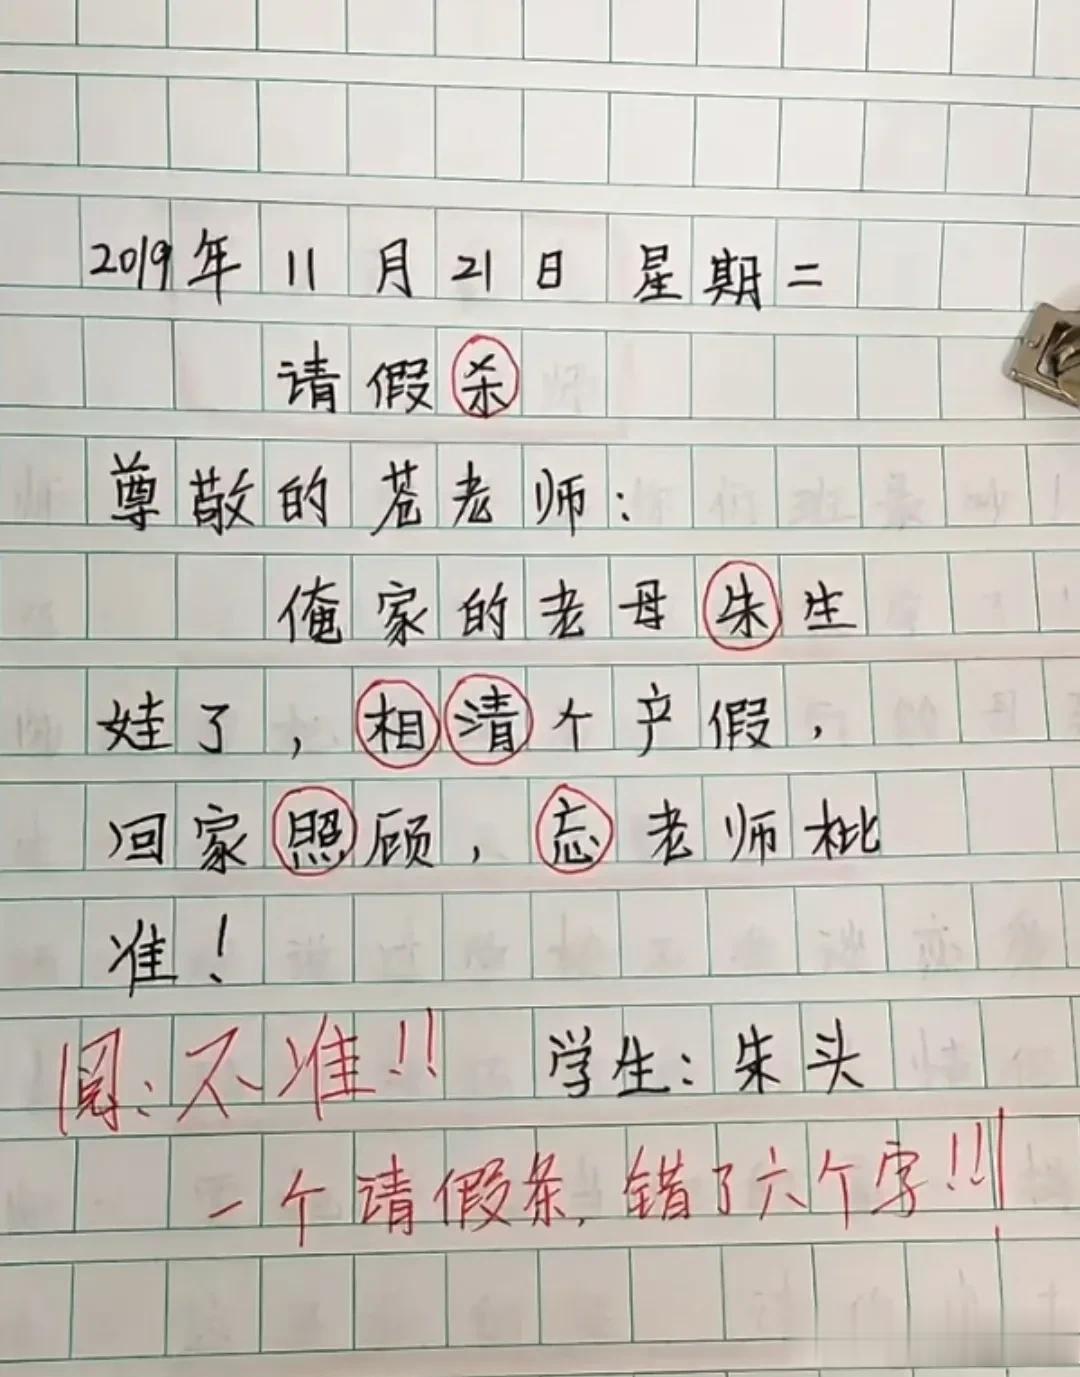 2019年 11 月 21 日 星期二
请假杀
尊敬的苍老师：
俺家的老母朱生
娃了，相清个产假，
回家照顾，忘老师枇
准！
阅：不准！！ 学生：朱头
一个请假条，错了六个字！！！